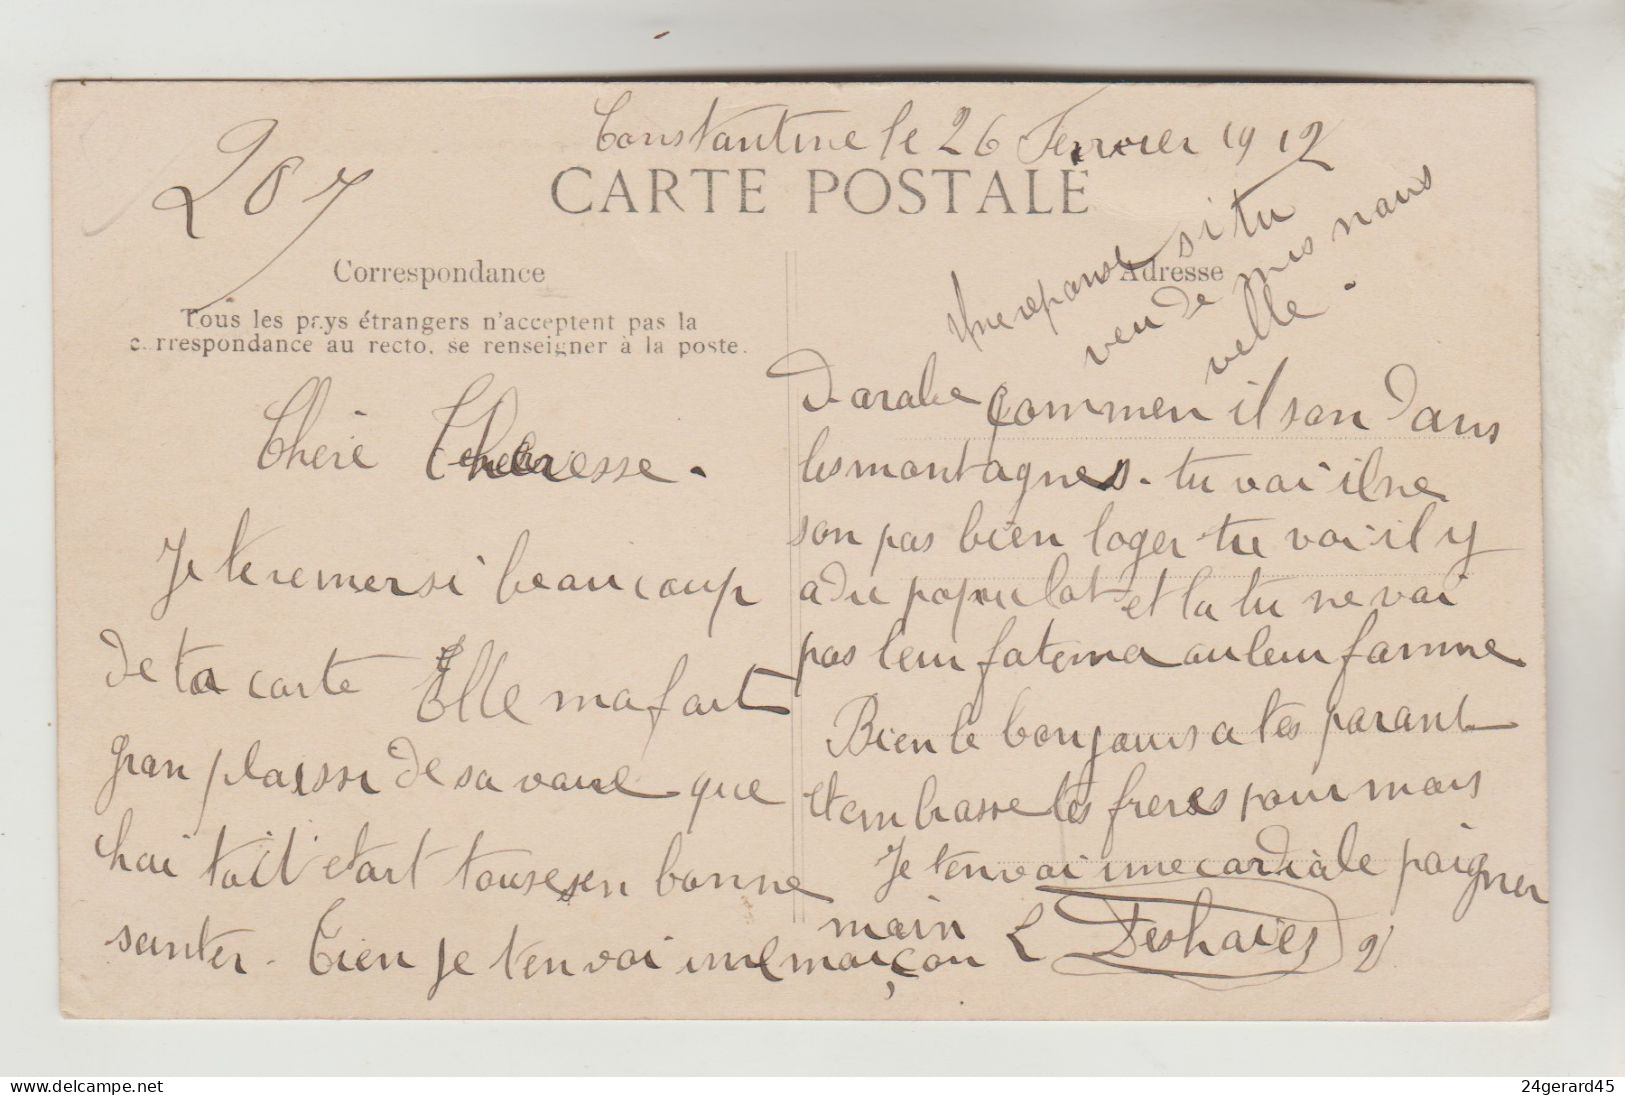 Constantine le 26 Fevrier 1912
207
CARTE POSTALE
Correspondance
Adresse
Tous les pays étrangers n'acceptent pas la
c rrespondance au recto, se renseigner à la poste.
Une reponse si tu
veu de mes nous
velle.
Chère Theresse.
Je te remersi beaucoup
de ta carte Elle ma fait
gran plaissir de savoire que
chai toit etait touse en bonne
santer. Tien je t'envoi une maiçon
Darabe commen il son dans
les montagnes. tu voi il ne
son pas bien loger tu voi il y
a du populot et la tu ne voi
pas leur fatema au leur famme
Bien le bonjours a tes parant
et embrasse tes freres pour mois
Je t'envoi une cardiàle poigner
main L Deshaies
24gerard45
www.delcampe.net